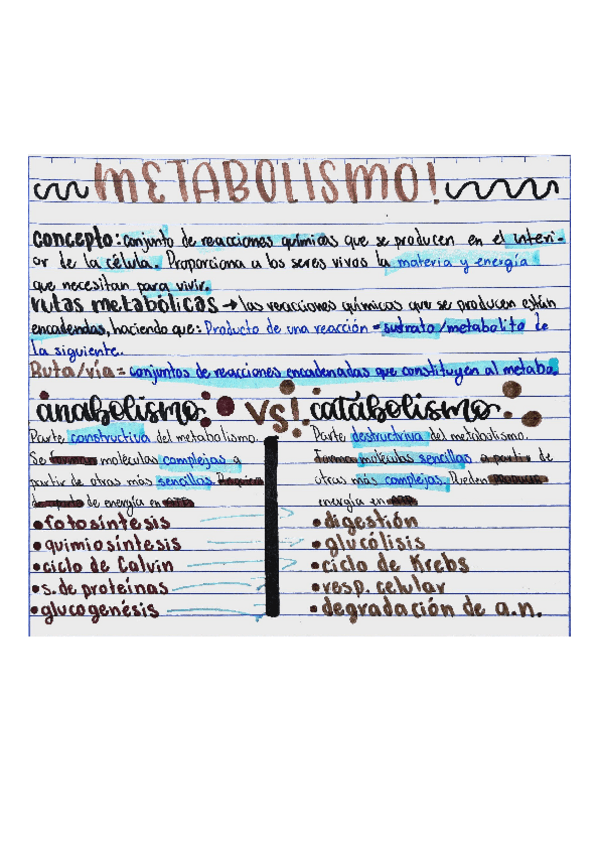 METABOLISMO!
concepto: conjunto de reacciones químicas que se producen en el interi-
or de la célula. Proporciona a los seres vivos la materia y energía
que necesitan para vivir.
rutas metabólicas → las reacciones químicas que se producen están
encadendas, haciendo que: Producto de una reacción = sustrato/metabolito de
la siguiente.
Ruta/vía = conjuntos de reacciones encadenadas que constituyen al metabo.
anabolismo vs! catabolismo
Parte constructiva del metabolismo.
Se moléculas complejas a
partir de otras más sencillas.
de energía en
• fotosíntesis
• quimiosíntesis
• ciclo de Calvin
• s. de proteínas
• glucogenésis
Parte destructiva del metabolismo.
Forma moléculas sencillas a partir de
otras más complejas. Pueden
energía en
• digestión
• glucólisis
• ciclo de Krebs
• resp. celular
• degradación de a.n.